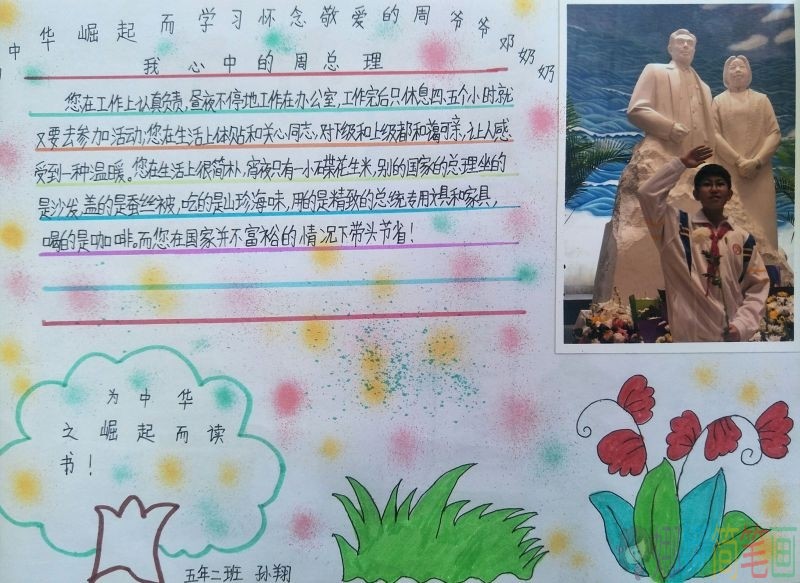 中华崛起而学习怀念敬爱的周爷爷邓奶奶
我心中的周总理
您在工作上认真负责,昼夜不停地工作在办公室,工作完后只休息四、五个小时就
又要去参加活动,您在生活上体贴和关心同志,对下级和上级都和蔼可亲,让人感
受到一种温暖。您在生活上很简朴,宵夜只有一小碟花生米,别的国家的总理坐的
是沙发,盖的是蚕丝被,吃的是山珍海味,用的是精致的总统专用文具和家具,
喝的是咖啡。而您在国家并不富裕的情况下带头节省!
为中华
之崛起而读
书!
五年二班 孙翔
简笔画